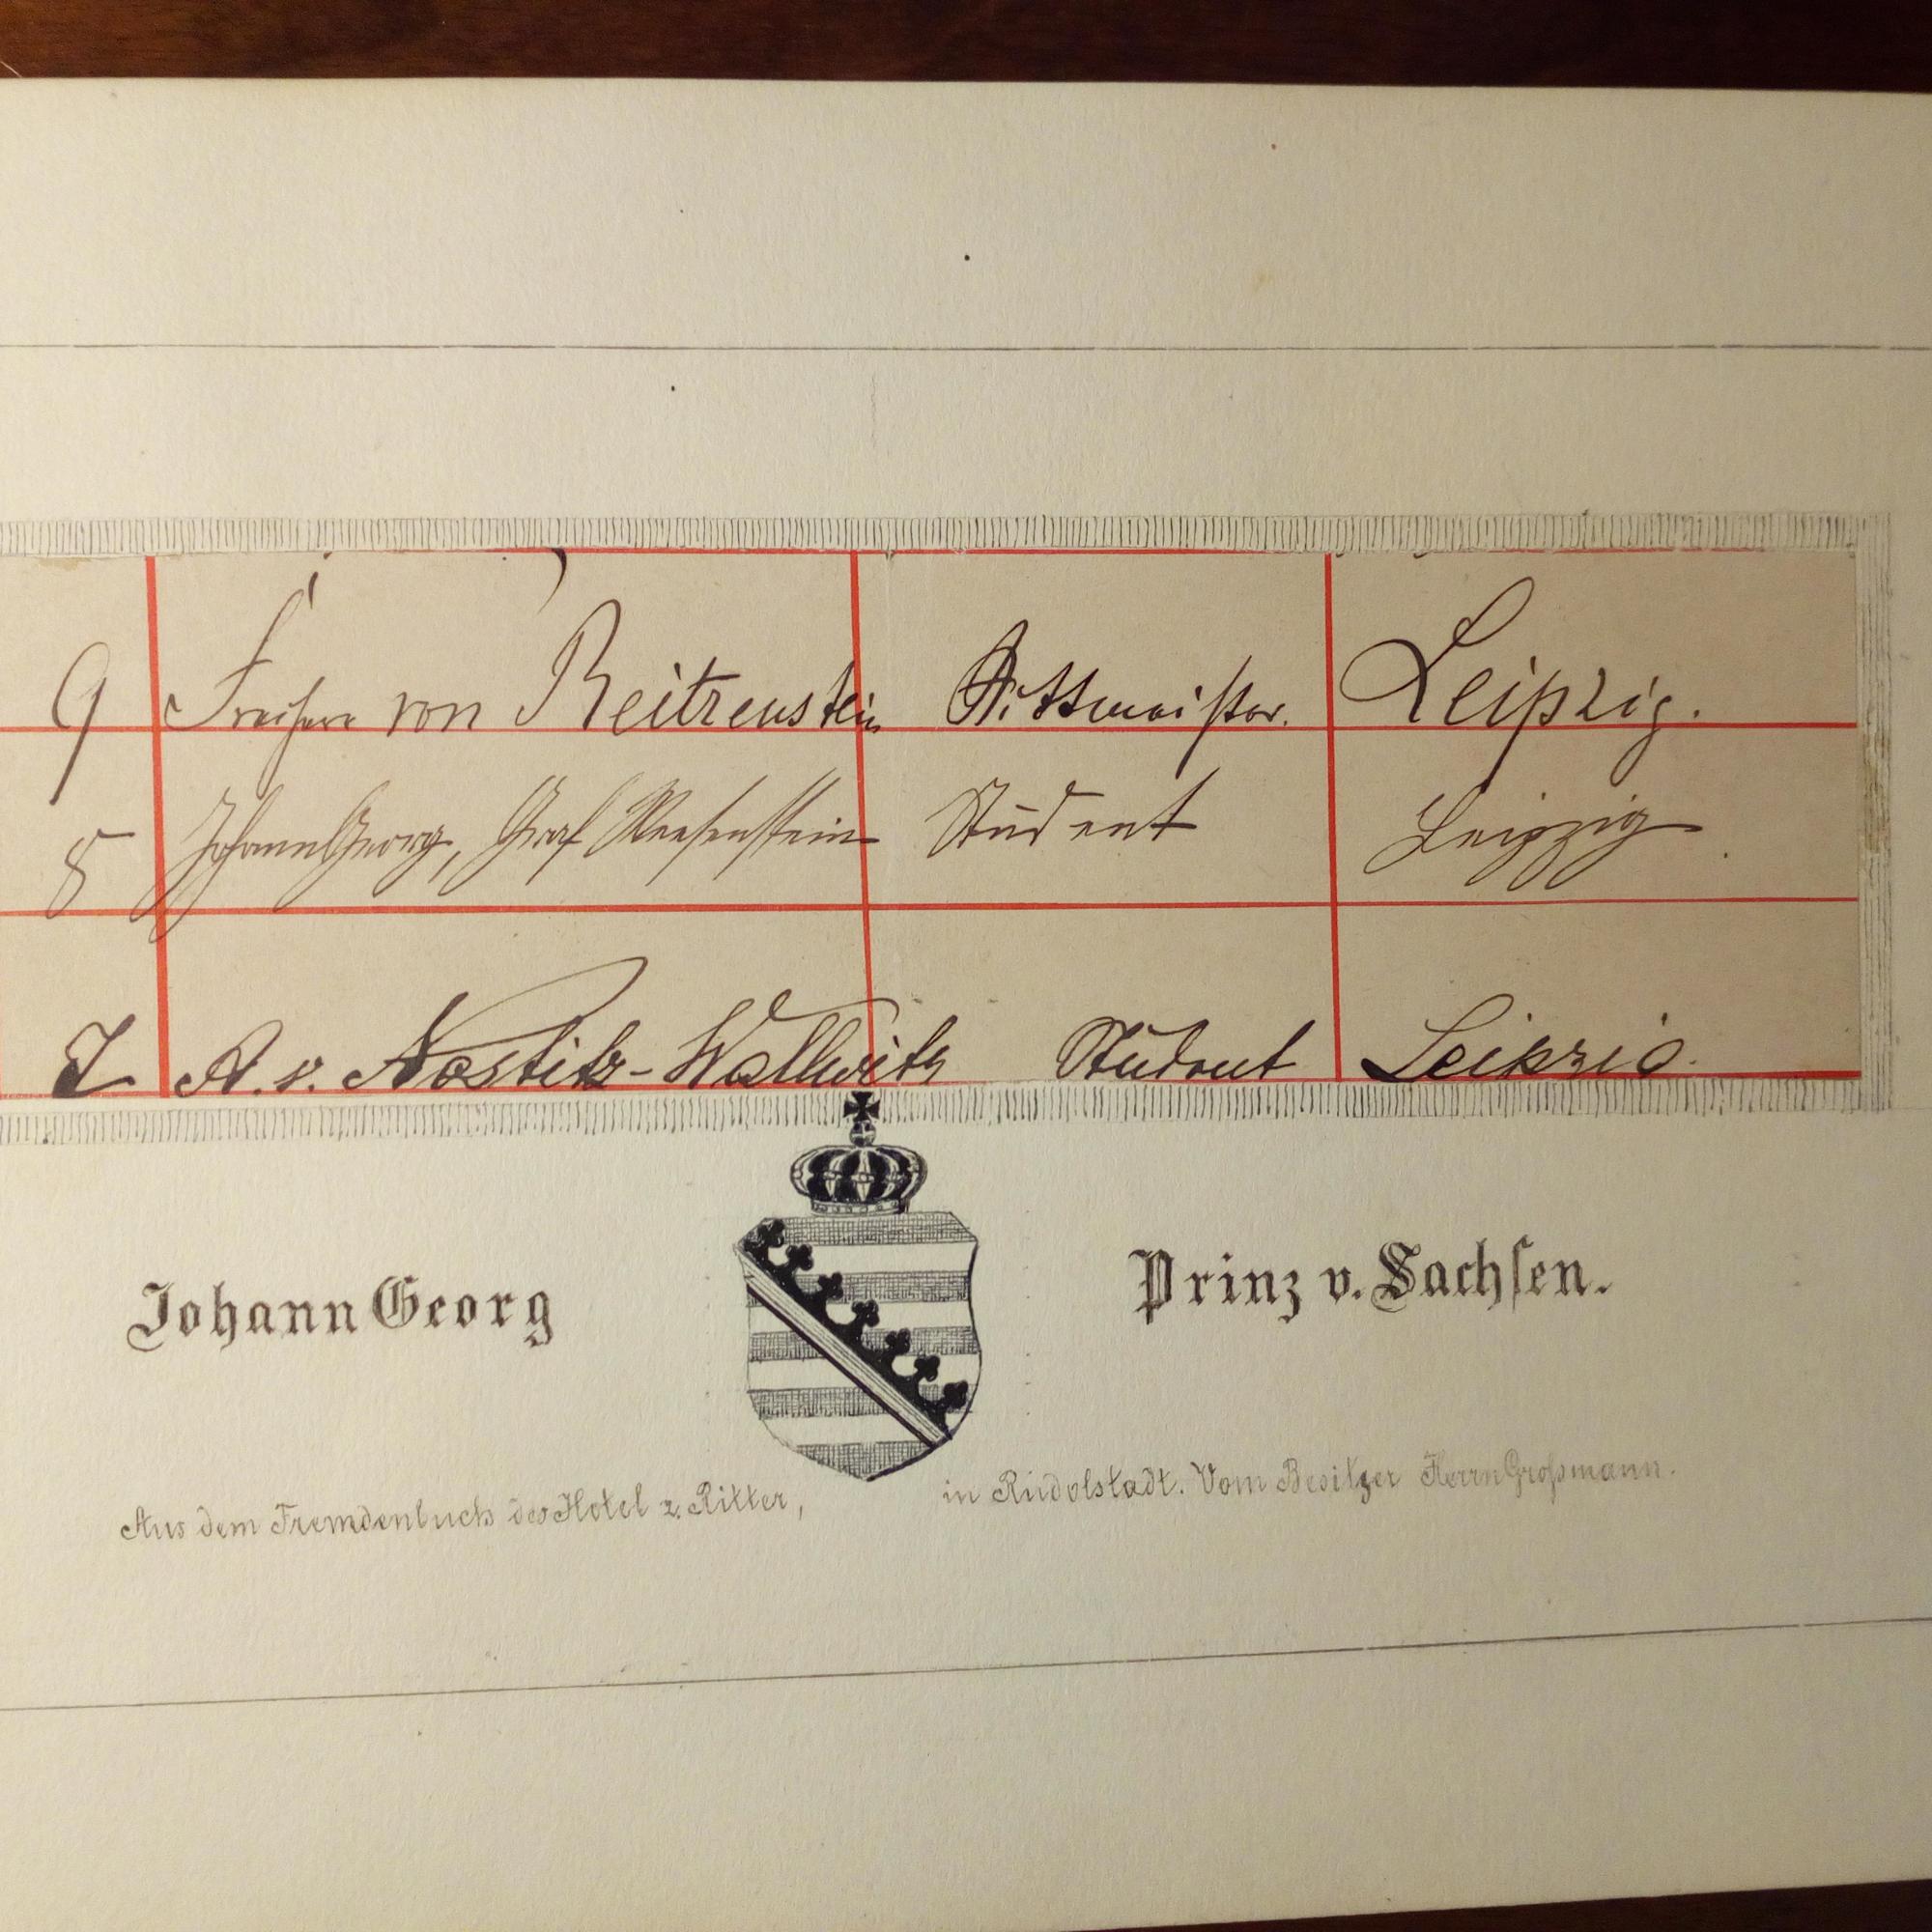 9 Freiherr von Reitzenstein Rittmeister. Leipzig.
8 Johann Georg, Graf Weesenstein Student Leipzig
7 A. v. Nostitz-Wallwitz Student Leipzig.
Johann Georg Prinz v. Sachsen.
Aus dem Fremdenbuch des Hotel z. Ritter, in Rudolstadt. Vom Besitzer Herrn Großmann.